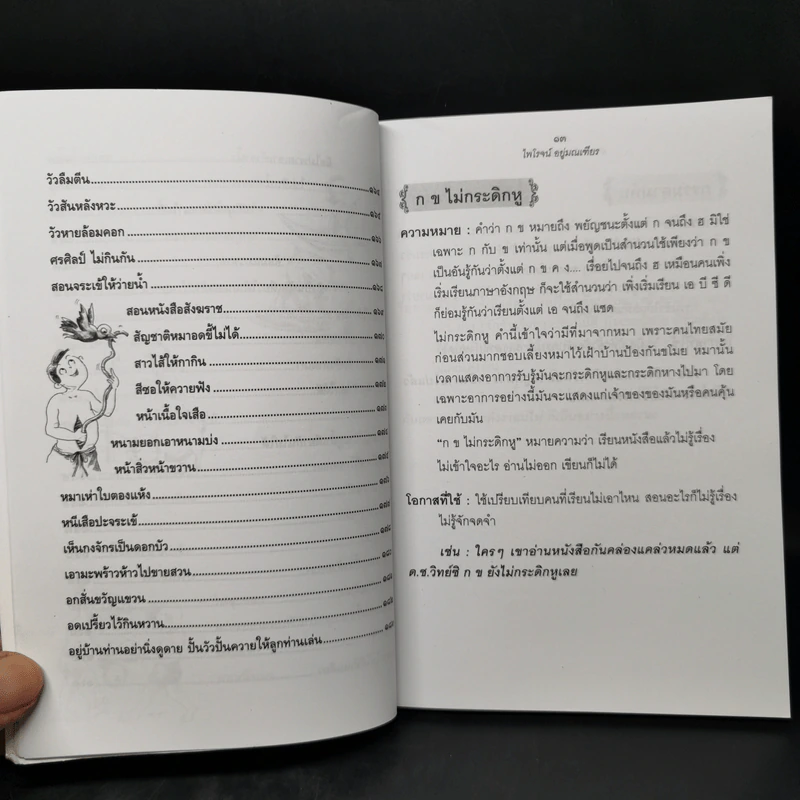 วัวลืมตีน
วัวสันหลังหวะ
วัวหายล้อมคอก
ศรศิลป์ ไม่กินกัน
สอนจระเข้ให้ว่ายน้ำ
สอนหนังสือสังฆราช
สัญชาติหมาอดขี้ไม่ได้
สาวไส้ให้กากิน
สีซอให้ควายฟัง
หน้าเนื้อใจเสือ
หนามยอกเอาหนามบ่ง
หน้าสิ่วหน้าขวาน
หมาเห่าใบตองแห้ง
หนีเสือปะจระเข้
เห็นกงจักรเป็นดอกบัว
เอามะพร้าวห้าวไปขายสวน
อกสั่นขวัญแขวน
อดเปรี้ยวไว้กินหวาน
อยู่บ้านท่านอย่านิ่งดูดาย ปั้นวัวปั้นควายให้ลูกท่านเล่น
๑๓
ไพโรจน์ อยู่มณเฑียร
ก ข ไม่กระดิกหู
ความหมาย : คำว่า ก ข หมายถึง พยัญชนะตั้งแต่ ก จนถึง ฮ มิใช่
เฉพาะ ก กับ ข เท่านั้น แต่เมื่อพูดเป็นสำนวนใช้เพียงว่า ก ข
เป็นอันรู้กันว่าตั้งแต่ ก ข ค ง.... เรื่อยไปจนถึง ฮ เหมือนคนเพิ่ง
เริ่มเรียนภาษาอังกฤษ ก็จะใช้สำนวนว่า เพิ่งเริ่มเรียน เอ บี ซี ดี
ก็ย่อมรู้กันว่าเรียนตั้งแต่ เอ จนถึง แซด
ไม่กระดิกหู คำนี้เข้าใจว่ามีที่มาจากหมา เพราะคนไทยสมัย
ก่อนส่วนมากชอบเลี้ยงหมาไว้เฝ้าบ้านป้องกันขโมย หมานั้น
เวลาแสดงอาการรับรู้มันจะกระดิกหูและกระดิกหางไปมา โดย
เฉพาะอาการอย่างนี้มันจะแสดงแก่เจ้าของของมันหรือคนคุ้น
เคยกับมัน
“ก ข ไม่กระดิกหู” หมายความว่า เรียนหนังสือแล้วไม่รู้เรื่อง
ไม่เข้าใจอะไร อ่านไม่ออก เขียนก็ไม่ได้
โอกาสที่ใช้ : ใช้เปรียบเทียบคนที่เรียนไม่เอาไหน สอนอะไรก็ไม่รู้เรื่อง
ไม่รู้จักจดจำ
เช่น : ใครๆ เขาอ่านหนังสือกันคล่องแคล่วหมดแล้ว แต่
ด.ช.วิทย์ซิ ก ข ยังไม่กระดิกหูเลย